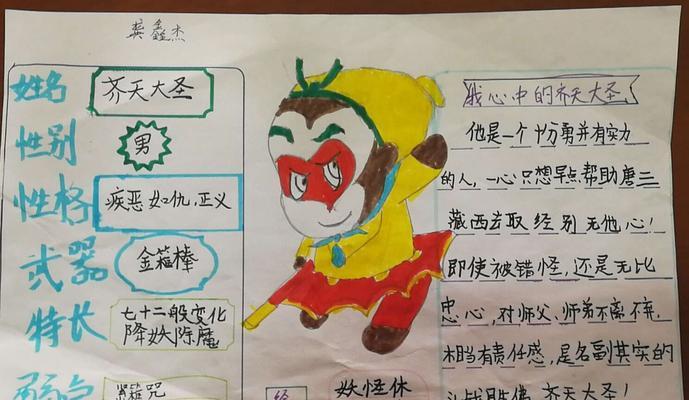 龚鑫杰
姓名 齐天大圣
性别 男
性格 疾恶如仇,正义
武器 金箍棒
特长 七十二般变化
降妖除魔
紧箍咒
妖怪休
我心中的齐天大圣
他是一个十份勇并有实力
的人,一心只想早点帮助唐三
藏西去取经别无他心!
即使被错怪,还是无比
忠心,对师父、师弟不离不弃,
相当有责任感,是名副其实的
斗战胜佛 齐天大圣!